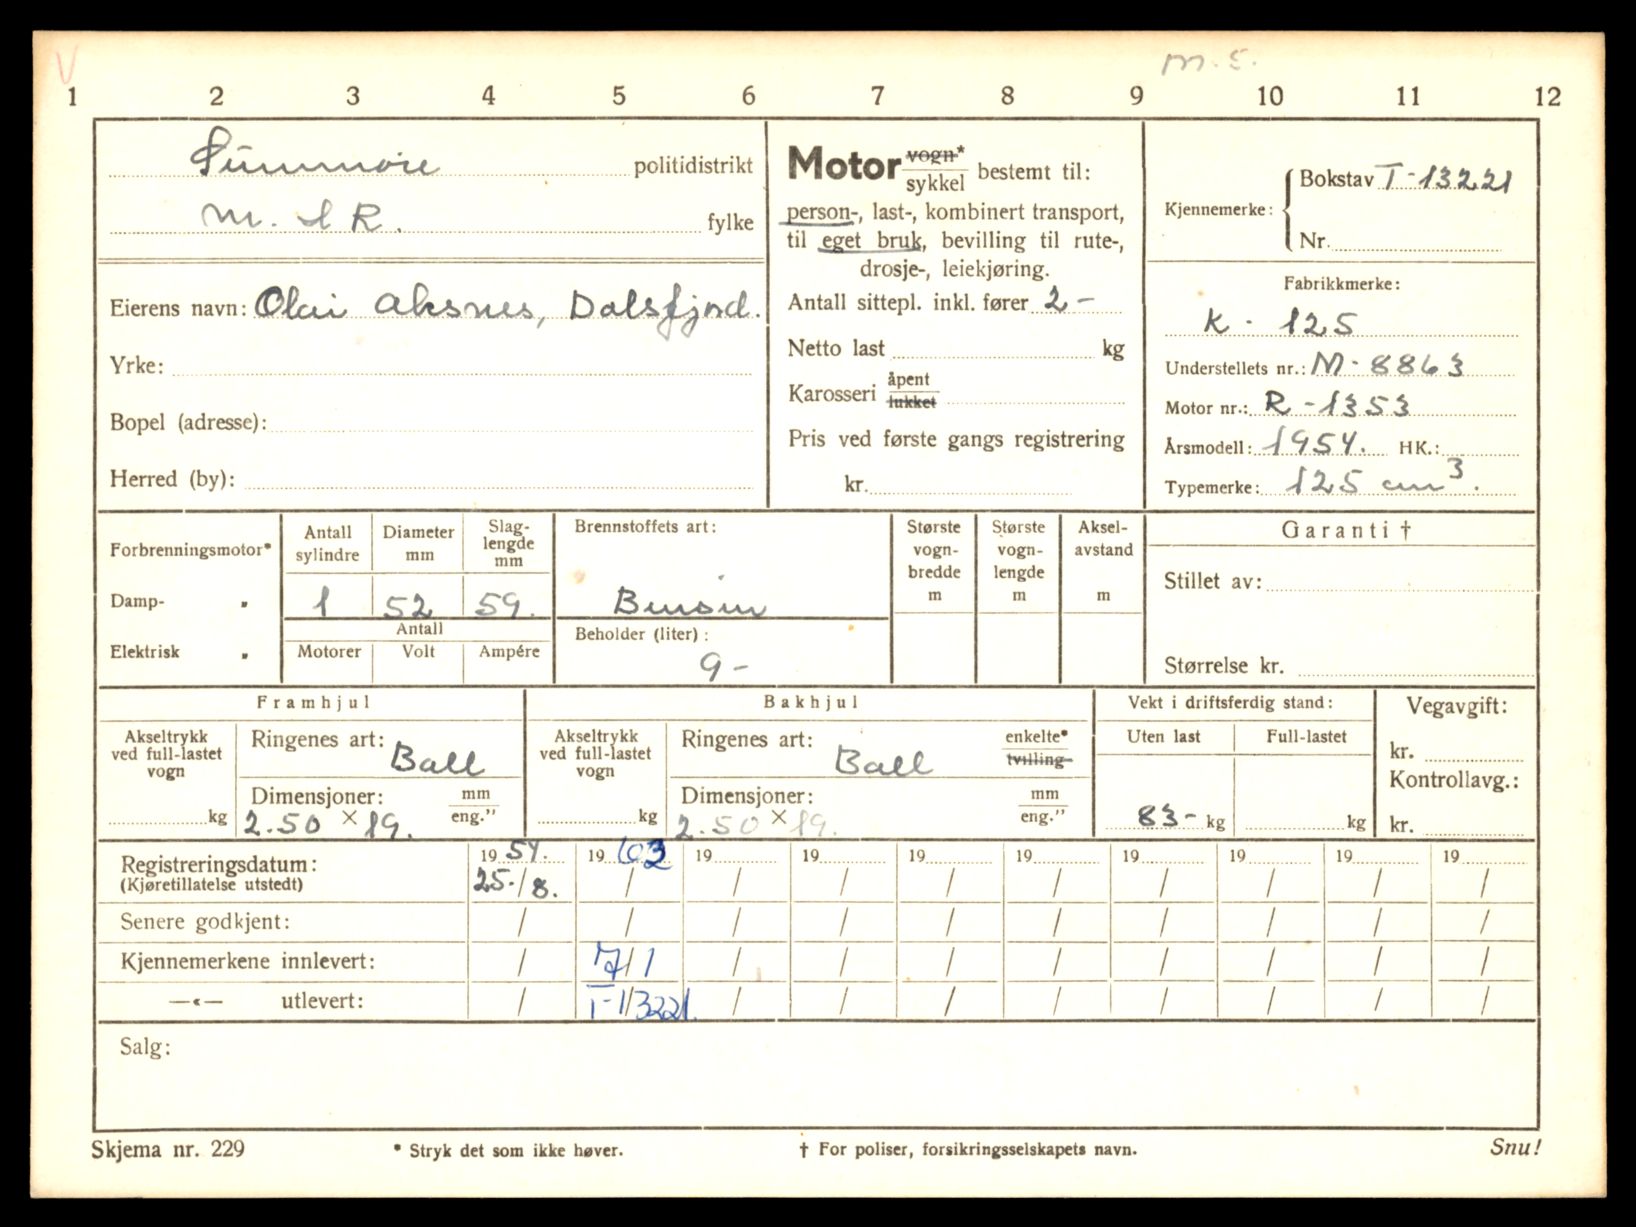 V
M. S.
1 2 3 4 5 6 7 8 9 10 11 12
Sunnmøre politidistrikt
M. & R. fylke
Eierens navn: Olai Aksnes, Dalsfjord.
Yrke:
Bopel (adresse):
Herred (by):
Motor vogn* sykkel bestemt til:
person-, last-, kombinert transport,
til eget bruk, bevilling til rute-,
drosje-, leiekjøring.
Antall sittepl. inkl. fører 2 -
Netto last kg
Karosseri åpent lukket
Pris ved første gangs registrering
kr.
Kjennemerke: Bokstav T-13221
Nr.
Fabrikkmerke:
K - 125
Understellets nr.: M-8863
Motor nr.: R-1353
Årsmodell: 1954. HK.:
Typemerke: 125 cm3.
Forbrenningsmotor*
Damp- "
Elektrisk "
Antall sylindre 1
Diameter mm 52
Slag-lengde mm 59.
Antall
Motorer Volt Ampére
Brennstoffets art:
Bensin
Beholder (liter):
9 -
Største vogn-bredde m
Største vogn-lengde m
Aksel-avstand m
Garanti †
Stillet av:
Størrelse kr.
Framhjul
Akseltrykk ved full-lastet vogn kg
Ringenes art: Ball
Dimensjoner: mm eng."
2.50 × 19.
Bakhjul
Akseltrykk ved full-lastet vogn kg
Ringenes art: Ball enkelte* tvilling
Dimensjoner: mm eng."
2.50 × 19.
Vekt i driftsferdig stand:
Uten last Full-lastet
83- kg kg
Vegavgift:
kr.
Kontrollavg.:
kr.
Registreringsdatum: 19 54. 19 63 19 19 19 19 19 19 19 19
(Kjøretillatelse utstedt) 25./8. / / / / / / / / /
Senere godkjent: / / / / / / / / / /
Kjennemerkene innlevert: / 7/1 / / / / / / / /
—«— utlevert: / T-13221. / / / / / / / /
Salg:
Skjema nr. 229 * Stryk det som ikke høver. † For poliser, forsikringsselskapets navn. Snu!